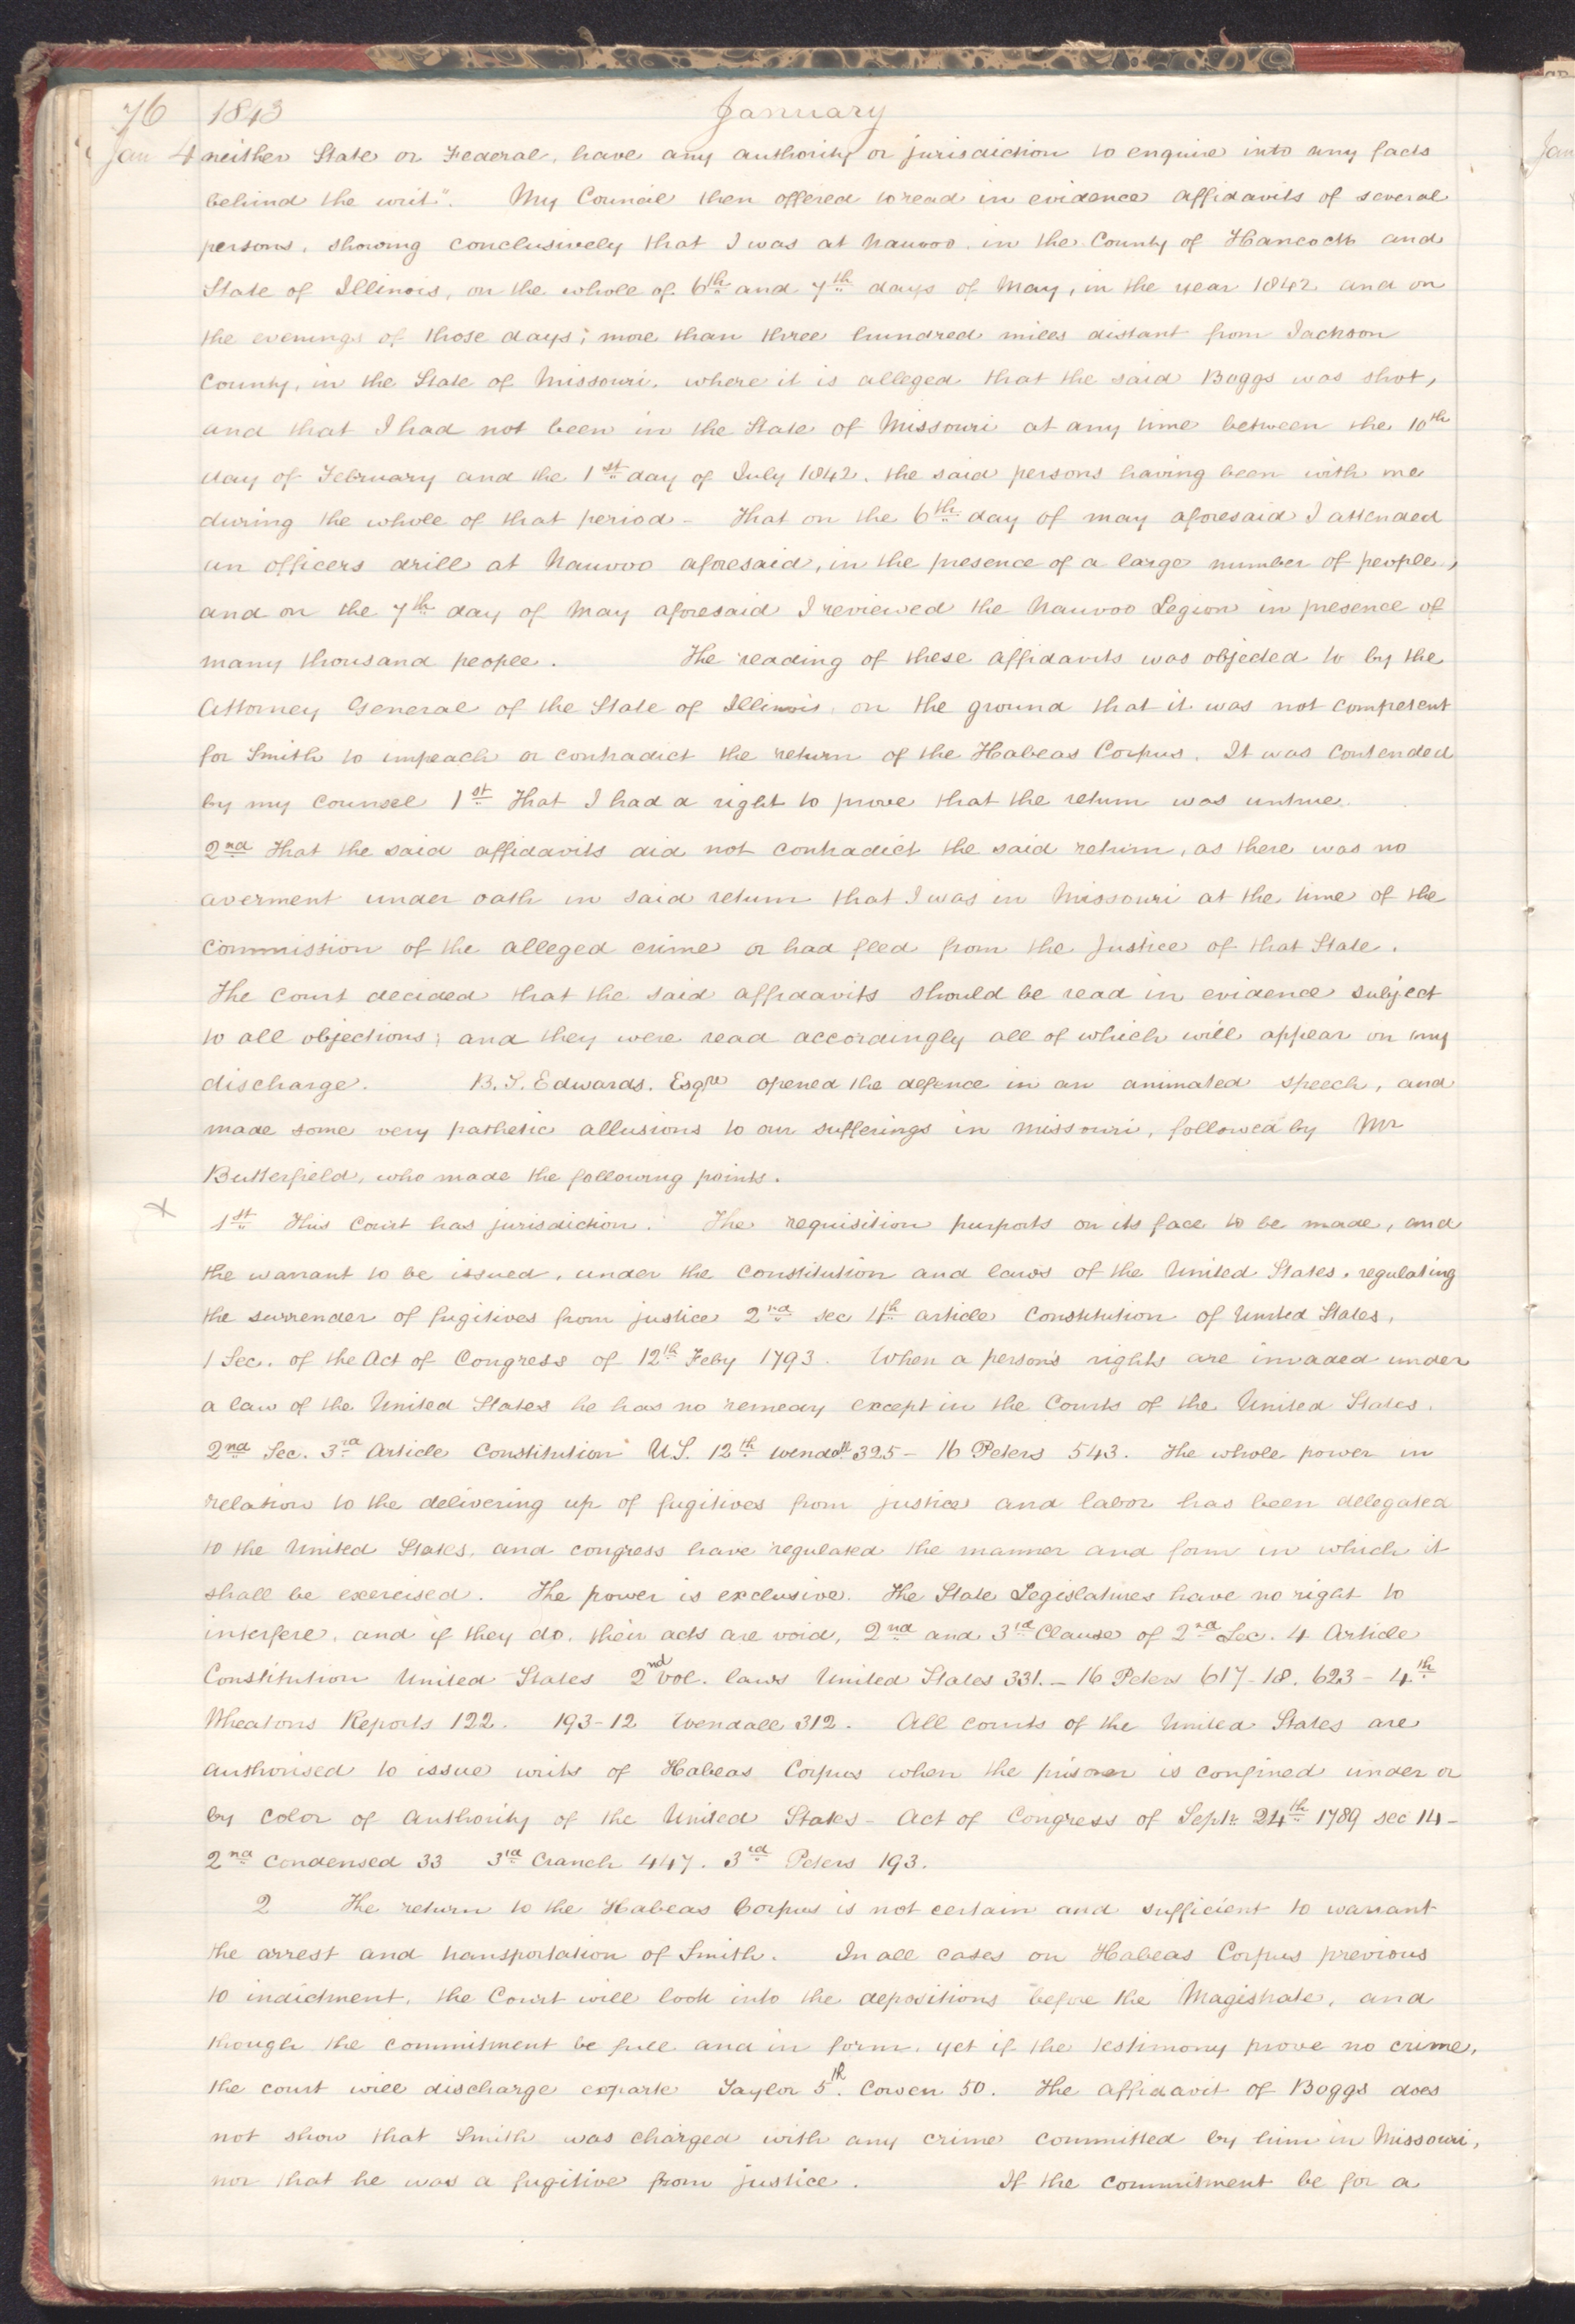 76 1843 January
Jan 4 neither State or Federal, have any authority or jurisdiction to enquire into any facts
behind the writ". My Council then offered to read in evidence affidavits of several
persons, showing conclusively that I was at Nauvoo, in the County of Hancock and
State of Illinois, on the whole of 6th and 7th days of May, in the year 1842 and on
the evenings of those days; more than three hundred miles distant from Jackson
County, in the State of Missouri, where it is alleged that the said Boggs was shot,
and that I had not been in the State of Missouri at any time between the 10th
day of February and the 1st day of July 1842, the said persons having been with me
during the whole of that period – That on the 6th day of may aforesaid I attended
an officers drill at Nauvoo aforesaid, in the presence of a large number of people,
and on the 7th day of May aforesaid I reviewed the Nauvoo Legion in presence of
many thousand people. The reading of these affidavits was objected to by the
Attorney General of the State of Illinois, on the ground that it was not competent
for Smith to impeach or contradict the return of the Habeas Corpus. It was contended
by my counsel 1st That I had a right to prove that the return was untrue.
2nd That the said affidavits did not contradict the said return, as there was no
averment under oath in said return that I was in Missouri at the time of the
commission of the alleged crime or had fled from the Justice of that State.
The court decided that the said affidavits should be read in evidence subject
to all objections; and they were read accordingly all of which will appear on my
discharge. B. S. Edwards. Esqre opened the defence in an animated speech, and
made some very pathetic allusions to our sufferings in Missouri, followed by Mr
Butterfield, who made the following points.
X 1st This Court has jurisdiction. The requisition purports on its face to be made, and
the warrant to be issued, under the constitution and laws of the United States, regulating
the surrender of fugitives from justice 2nd sec 4th article Constitution of United States,
1 Sec. of the Act of Congress of 12th Feby 1793. When a person's rights are invaded under
a law of the United States he has no remedy except in the Courts of the United States.
2nd Sec. 3rd Article Constitution U.S. 12th Wendall 325 – 16 Peters 543. The whole power in
relation to the delivering up of fugitives from justice and labor has been delegated
to the United States, and congress have regulated the manner and form in which it
shall be exercised. The power is exclusive. The State Legislatures have no right to
interfere, and if they do, their acts are void, 2nd and 3rd Clause of 2nd Sec. 4 Article
Constitution United States 2nd vol. laws United States 331. – 16 Peters 617-18. 623 – 4th
Wheatons Reports 122. 193-12 Wendall 312. All courts of the United States are
authorised to issue writs of Habeas Corpus when the prisoner is confined under or
by color of authority of the United States – Act of Congress of Septr 24th 1789 sec 14 –
2nd Condensed 33 3rd Cranch 447. 3rd Peters 193.
2 The return to the Habeas Corpus is not certain and sufficient to warrant
the arrest and transportation of Smith. In all cases on Habeas Corpus previous
to indictment, the Court will look into the depositions before the Magistrate, and
though the commitment be full and in form, yet if the testimony prove no crime,
the court will discharge exparte Taylor 5th Cowen 50. The affidavit of Boggs does
not show that Smith was charged with any crime committed by him in Missouri,
nor that he was a fugitive from justice. If the commitment be for a
Jan